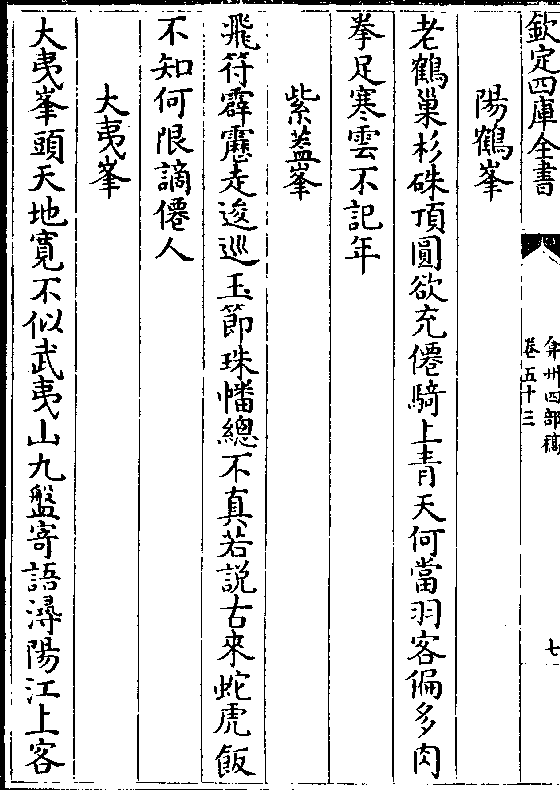 欽定四庫全書
弇州四部稿
卷五十三
七
陽鶴峯
老鶴巢杉硃頂圓欲充僊騎上青天何當羽客偏多肉
拳足寒雲不記年
紫蓋峯
飛符霹靂走逡巡玉節珠幡總不真若説古來蛇虎飯
不知何限謫僊人
大夷峯
大夷峯頭天地寛不似武夷山九盤寄語潯陽江上客